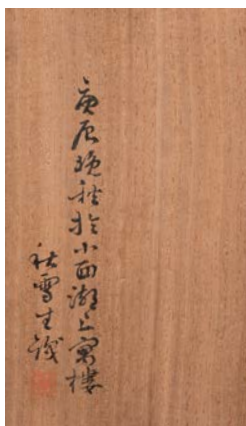 庚辰晩秋於小西湖之寓樓
秋雪生識